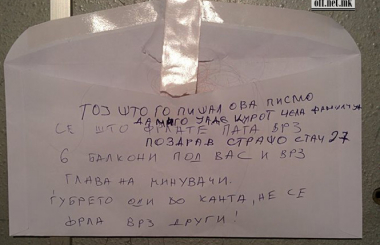 off.net.mk
ТОЈ ШТО ГО ПИШАЛ ОВА ПИСМО
ДА МУ ГО ЈАДЕ КУРОТ ЦЕЛА ФАМИЛИЈА
СЕ ШТО ФРЛАТЕ ПАЃА ВРЗ
ПОЗДРАВ СТРАШО СТАЧ 27
6 БАЛКОНИ ПОД ВАС И ВРЗ
ГЛАВА НА МИНУВАЧИ.
ЃУБРЕТО ОДИ ВО КАНТА, НЕ СЕ
ФРЛА ВРЗ ДРУГИ!